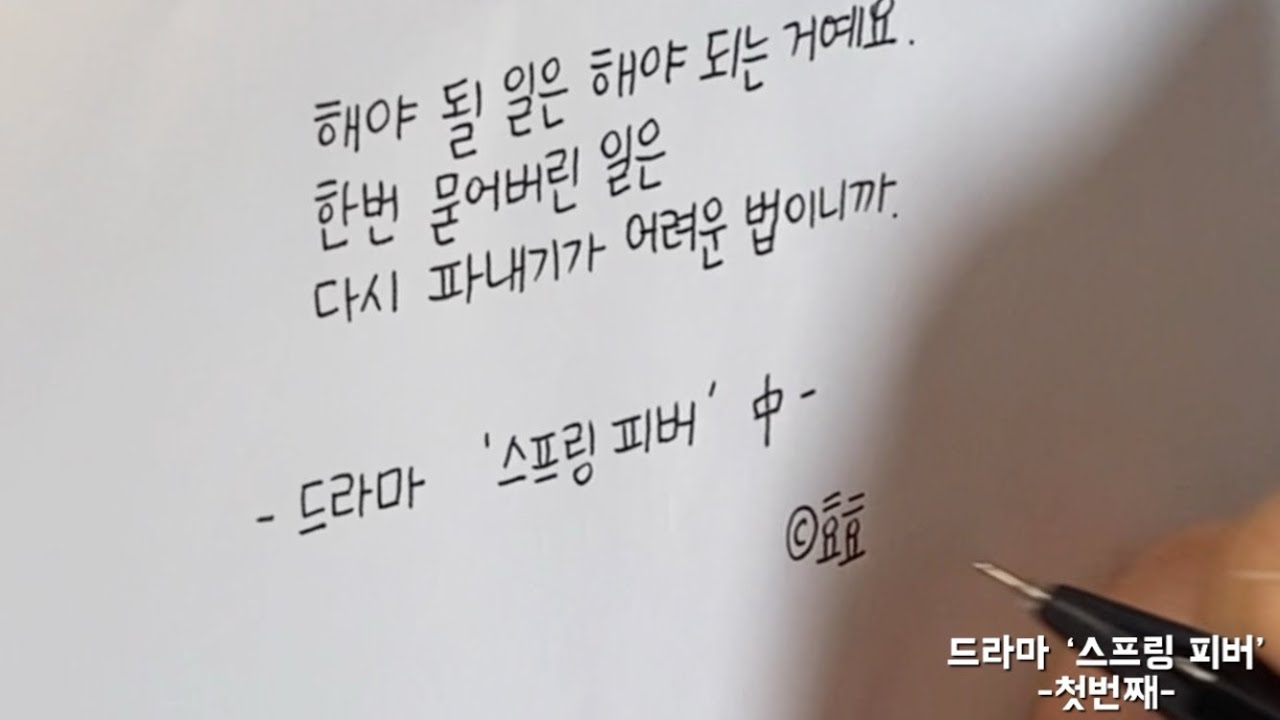 해야 될 일은 해야 되는 거예요.
한번 묻어버린 일은
다시 파내기가 어려운 법이니까.
- 드라마 '스프링 피버' 中 -
©효효
드라마 ‘스프링 피버’
-첫번째-